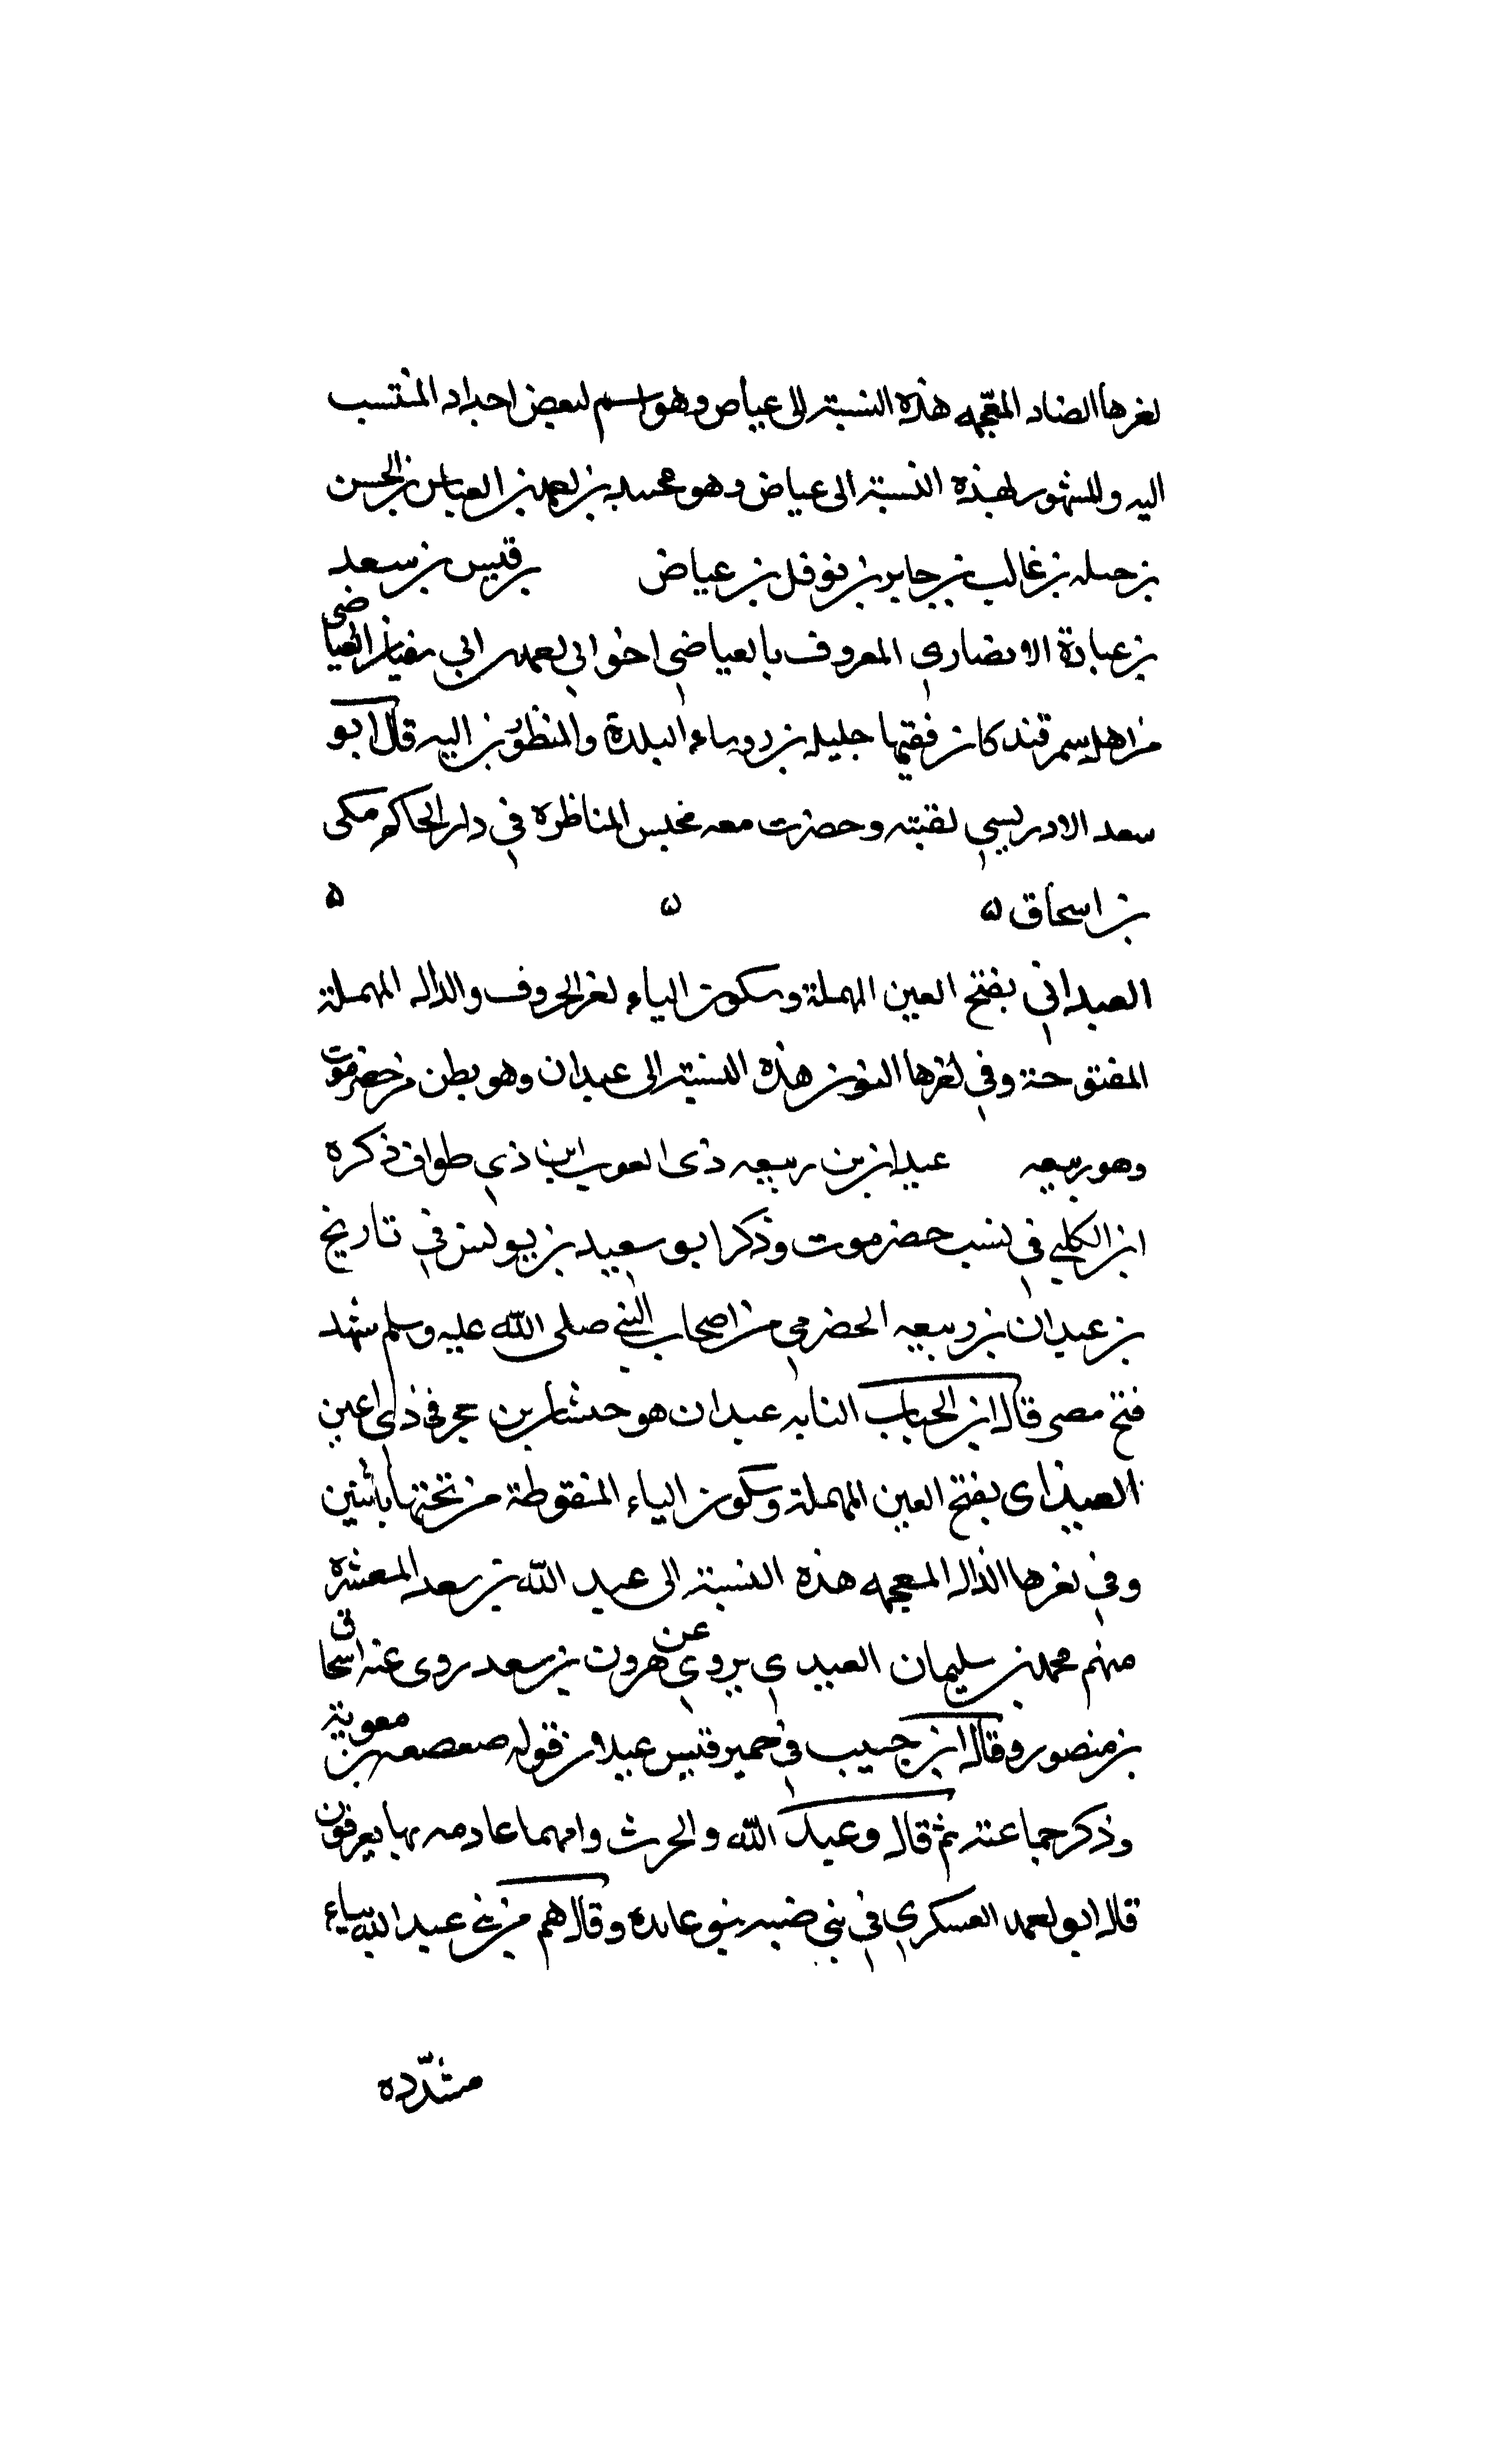 اخرها الضاد المعجمه هذه النسبة الى عياض وهو اسم لبعض اجداد المنتسب
اليه والمشهور بهذه النسبة الى عياض وهو محمد بن احمد بن العباس بن الحسن
بن جبله بن غالب بن جابر بن نوفل بن عياض بن قيس بن سعد
بن عبادة الانصاري المعروف بالعياضي اخو ابي احمد بن ابي العياضي
من اهل سمرقند كان فقيها جليلا من روساء البلدة والمنظور اليه قال ابو
سعد الادريسي لقيته وحضرت معه مجلس المناظرة في دار الحاكم مكي
بن اسحاق ه ه ه
العيداني بفتح العين المهملة وسكون الياء اخر الحروف والدال المهملة
المفتوحة وفي اخرها النون هذه النسبة الى عيدان وهو بطن من حضرموت
وهو ربيعه عيدان بن ربيعه ذى العرب ابن ذي طواف ذكره
ابن الكلبي في نسب حضرموت وذكر ابو سعيد بن يونس في تاريخ
بن عيدان بن ربيعه الحضرمي من اصحاب النبي صلى الله عليه وسلم شهد
فتح مصر قال ابن الحباب النسابه عيدان هو بن حجر في ذي اعين
العيذاى بفتح العين المهملة وسكون الياء المنقوطة من تحتها باثنتين
وفي اخرها الذال المعجمه هذه النسبة الى عيذ الله بن سعد العشيرة
منهم محمد بن سليمان العيذي يروي عن هرون بن سعد روى عنه اسحاق
بن منصور وقال ابن حبيب في حمير وقيس عيلان قوله صعصعه بن معوية
وذكر جماعة ثم قال وعيذ الله والحرث وامهما بها يعرفون
قال ابو احمد العسكري في بني ضبه بنو عايذه وقال هم من بني عيذ الله بياء
مشدده